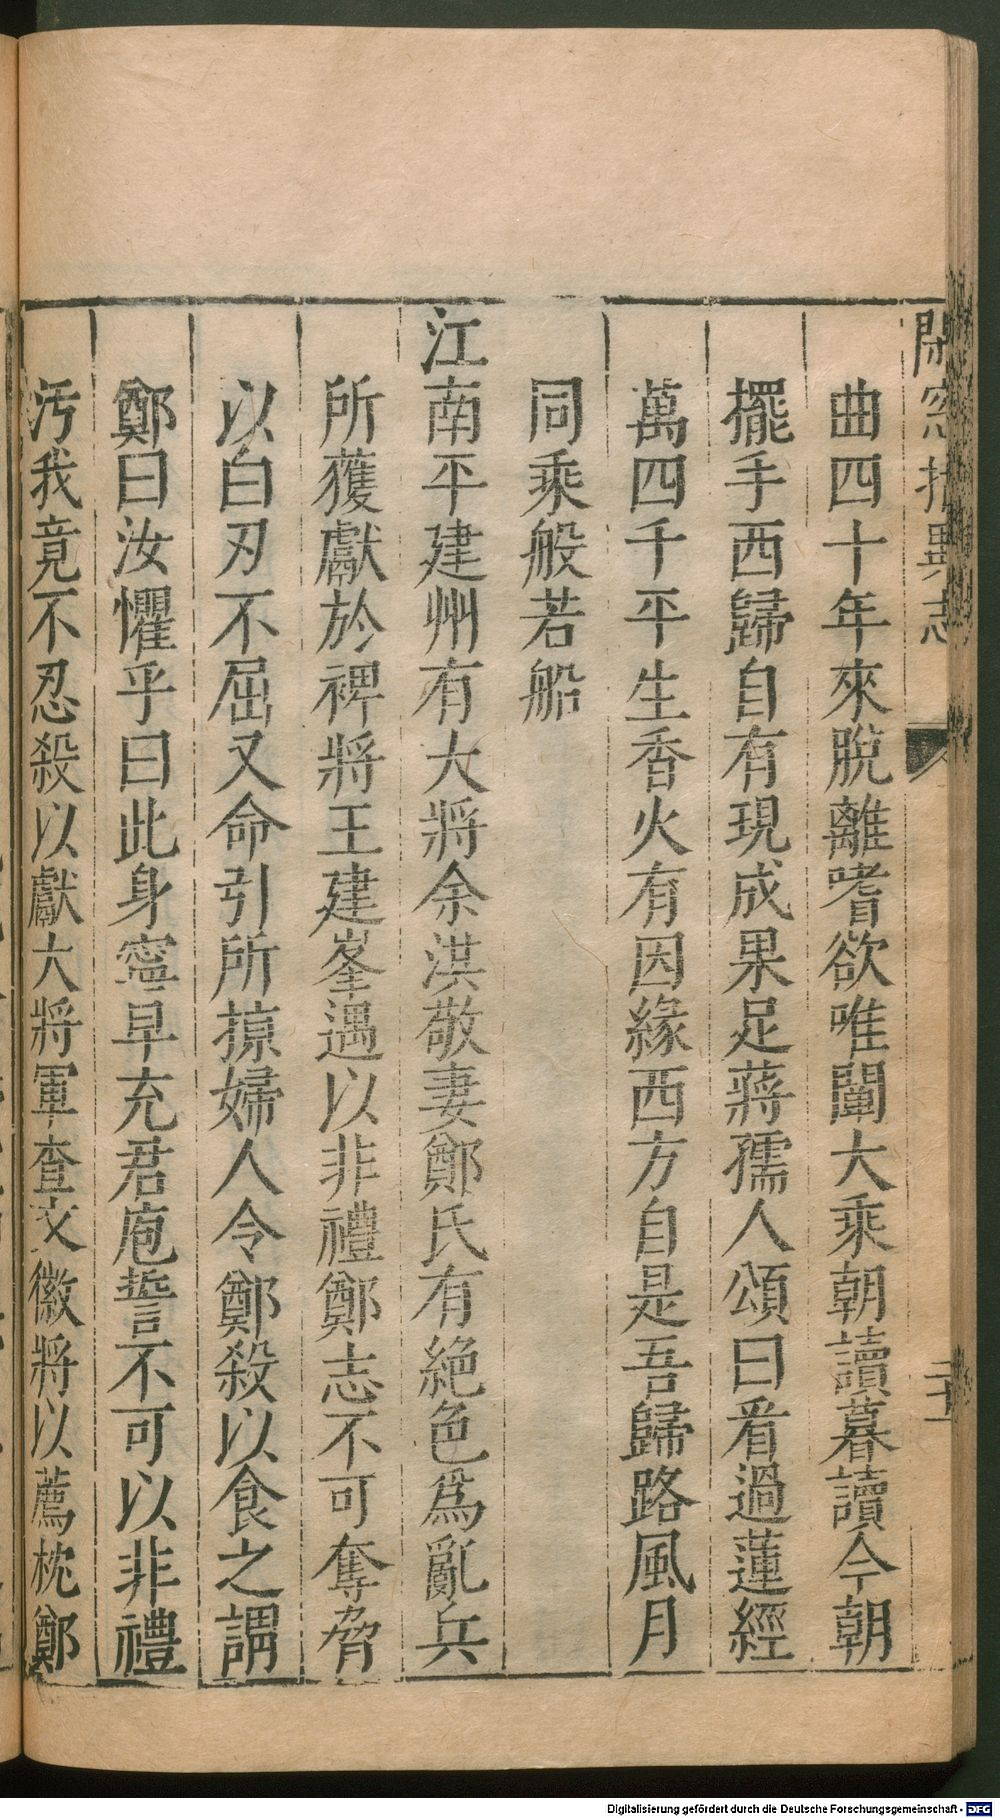 閑窓括異志
二十一
曲四十年來脫離嗜欲唯闡大乘朝讀暮讀今朝
擺手西歸自有現成果足蔣孺人頌曰看過蓮經
萬四千平生香火有因緣西方自是吾歸路風月
同乘般若船
江南平建州有大將余洪敬妻鄭氏有絕色爲亂兵
所獲獻於裨將王建峯遇以非禮鄭志不可奪脅
以白刃不屈又命引所掠婦人令鄭殺以食之謂
鄭曰汝懼乎曰此身寧早充君庖誓不可以非禮
汚我竟不忍殺以獻大將軍查文徽將以薦枕鄭
Digitalisierung gefördert durch die Deutsche Forschungsgemeinschaft - DFG